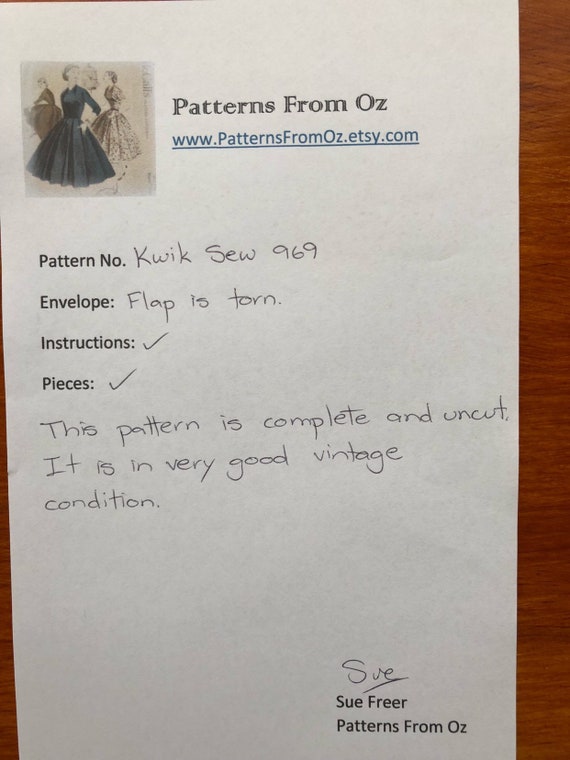 Patterns From Oz
www.PatternsFromOz.etsy.com
Pattern No. Kwik Sew 969
Envelope: Flap is torn.
Instructions: ✓
Pieces: ✓
This pattern is complete and uncut.
It is in very good vintage
condition.
Sue
Sue Freer
Patterns From Oz